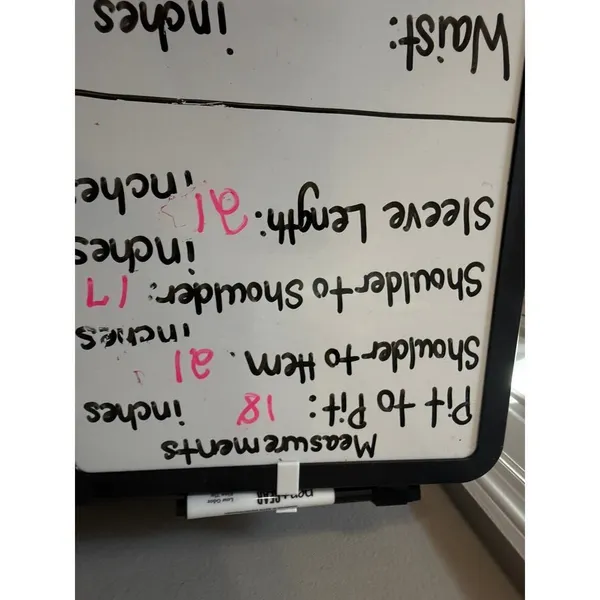 Measurements
Pit to Pit: 18 inches
Shoulder to Hem. 21 inches
Shoulder to Shoulder: 17 inches
Sleeve Length: 21 inche
Waist: inches
pen+GEAR
Low Odor